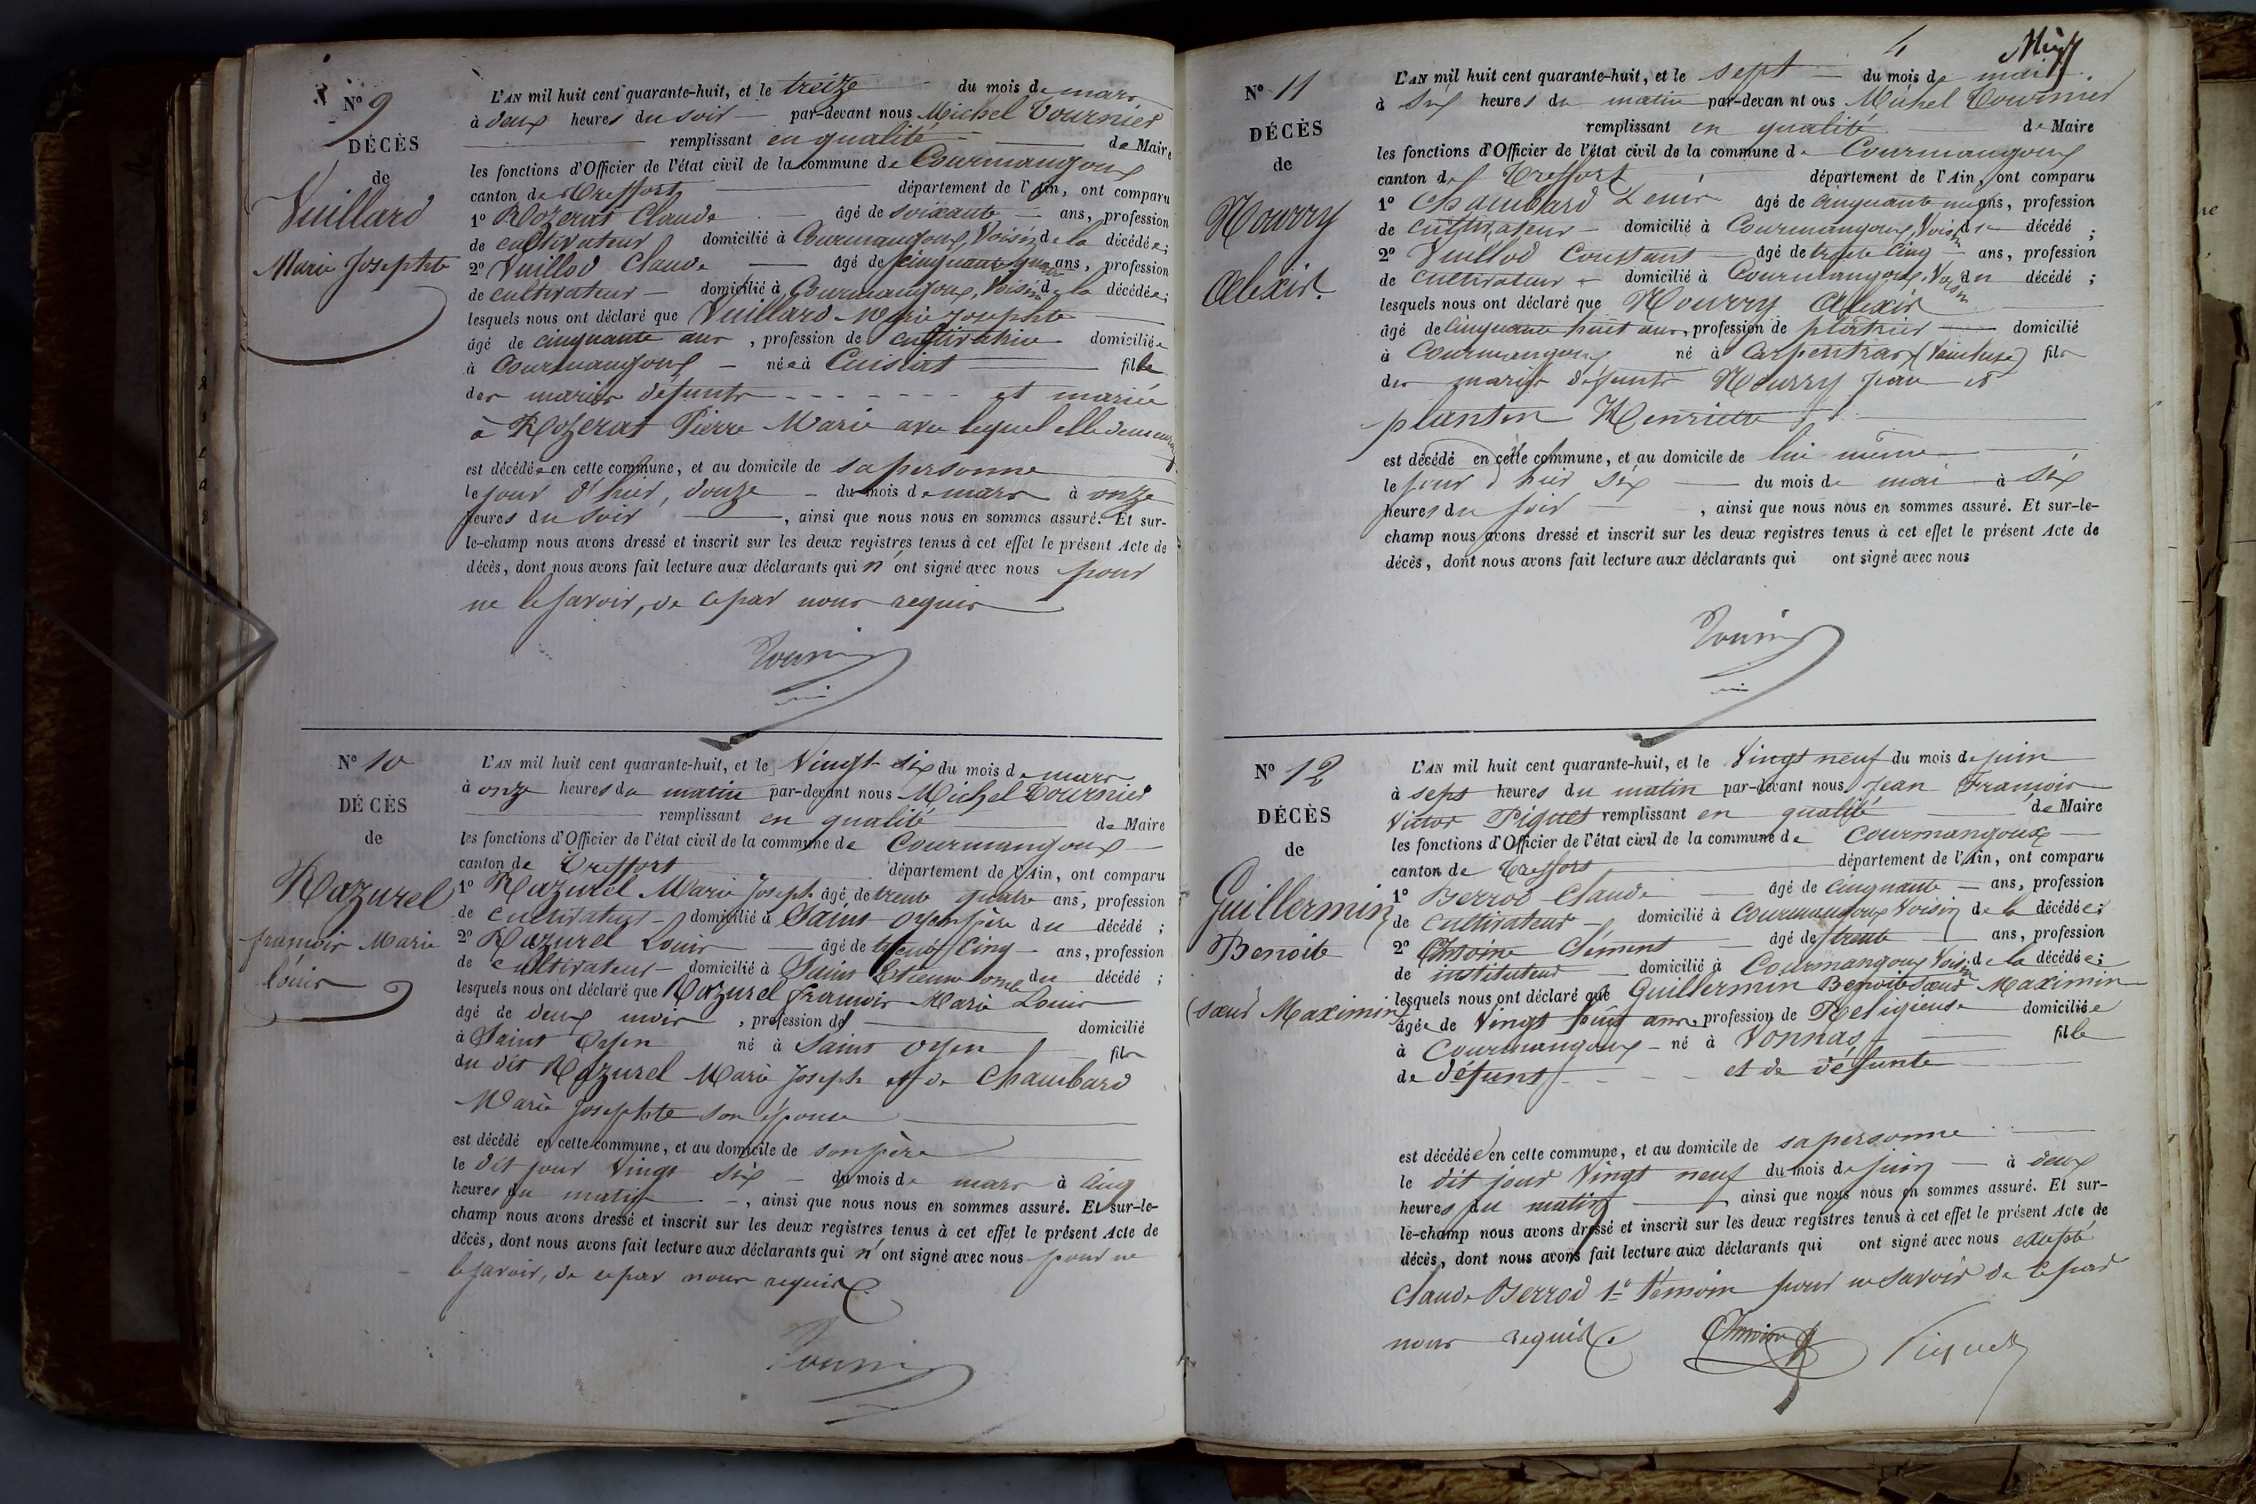 N° 9
DÉCÈS
de
Vuillard
Marie Josephte
L'AN mil huit cent quarante-huit, et le treize du mois de mars
à deux heures du soir par-devant nous Michel Tournier
remplissant en qualité de Maire
les fonctions d'Officier de l'état civil de la commune de Courmangoux
canton de Treffort département de l'Ain, ont comparu
1° Rozerat Claude âgé de soixante ans, profession
de cultivateur domicilié à Courmangoux, Voisin de la décédée;
2° Vuillod Claude âgé de cinquante ans, profession
de cultivateur domicilié à Courmangoux, Voisin de la décédée;
lesquels nous ont déclaré que Vuillard Marie Josephte
âgé de cinquante ans, profession de cultivatrice domiciliée
à Courmangoux née à Cuisiat fille
des mariés défunts - - - - - - - et mariée
à Rozerat Pierre Marie avec lequel elle demeurait
est décédée en cette commune, et au domicile de sa personne
le jour d'hier, douze du mois de mars à onze
heures du soir, ainsi que nous nous en sommes assuré. Et sur-
le-champ nous avons dressé et inscrit sur les deux registres tenus à cet effet le présent Acte de
décès, dont nous avons fait lecture aux déclarants qui n'ont signé avec nous pour
ne le savoir, de ce par nous requis
N° 10
DÉCÈS
de
Razurel
françois Marie
Louis
L'AN mil huit cent quarante-huit, et le Vingt-six du mois de mars
à onze heures du matin par-devant nous Michel Tournier
remplissant en qualité de Maire
les fonctions d'Officier de l'état civil de la commune de Courmangoux
canton de Treffort département de l'Ain, ont comparu
1° Razurel Marie Joseph âgé de trente quatre ans, profession
de cultivateur domicilié à Saint Oyen père du décédé;
2° Razurel Louis âgé de cinq ans, profession
de cultivateur domicilié à Saint Etienne du décédé;
lesquels nous ont déclaré que Razurel françois Marie Louis
âgé de deux mois, profession de domicilié
à Saint Oyen né à Saint Oyen fils
du dit Razurel Marie Joseph et de Chambard
Marie Josephte son épouse
est décédé en cette commune, et au domicile de son père
le dit jour Vingt six du mois de mars à cinq
heures du matin, ainsi que nous nous en sommes assuré. Et sur-le-
champ nous avons dressé et inscrit sur les deux registres tenus à cet effet le présent Acte de
décès, dont nous avons fait lecture aux déclarants qui n'ont signé avec nous pour ne
le savoir, de ce par nous requis
4
N° 11
DÉCÈS
de
Mourry
Alexis.
L'AN mil huit cent quarante-huit, et le sept du mois de mai
à six heures du matin par-devan nt ous Michel Tournier
remplissant en qualité de Maire
les fonctions d'Officier de l'état civil de la commune de Courmangoux
canton de Treffort département de l'Ain, ont comparu
1° Chambard Denis âgé de cinquante ans, profession
de cultivateur domicilié à Courmangoux, Voisin du décédé;
2° Vuillod Constant âgé de trente cinq ans, profession
de cultivateur domicilié à Courmangoux, Voisin du décédé;
lesquels nous ont déclaré que Mourry Alexis
âgé de Cinquante huit ans, profession de plâtrier domicilié
à Courmangoux né à Carpentras (Vaucluse) fils
des mariés défunts Mourry Jean et
plantin Henriette
est décédé en cette commune, et au domicile de lui même
le jour d'hier Six du mois de mai à Six
heures du soir, ainsi que nous nous en sommes assuré. Et sur-le-
champ nous avons dressé et inscrit sur les deux registres tenus à cet effet le présent Acte de
décès, dont nous avons fait lecture aux déclarants qui ont signé avec nous
N° 12
DÉCÈS
de
Guillermin
Benoite
(sœur Maximin)
L'AN mil huit cent quarante-huit, et le Vingt neuf du mois de juin
à sept heures du matin par-devant nous Jean François
Victor Piquet remplissant en qualité de Maire
les fonctions d'Officier de l'état civil de la commune de Courmangoux
canton de Treffort département de l'Ain, ont comparu
1° Berrod Claude âgé de cinquante ans, profession
de cultivateur domicilié à Courmangoux Voisin de la décédée;
2° Antoine Clément âgé de trente ans, profession
de instituteur domicilié à Courmangoux Voisin de la décédée;
lesquels nous ont déclaré que Guillermin Benoite sœur Maximin
âgée de Vingt huit ans, profession de Religieuse domiciliée
à Courmangoux né à Vonnas fille
de défunt - - - et de défunte
est décédée en cette commune, et au domicile de sa personne
le dit jour Vingt neuf du mois de juin à deux
heures du matin ainsi que nous nous en sommes assuré. Et sur-
le-champ nous avons dressé et inscrit sur les deux registres tenus à cet effet le présent Acte de
décès, dont nous avons fait lecture aux déclarants qui ont signé avec nous excepté
Claude Berrod 1er témoin pour ne savoir de ce par
nous requis. Antoine Piquet